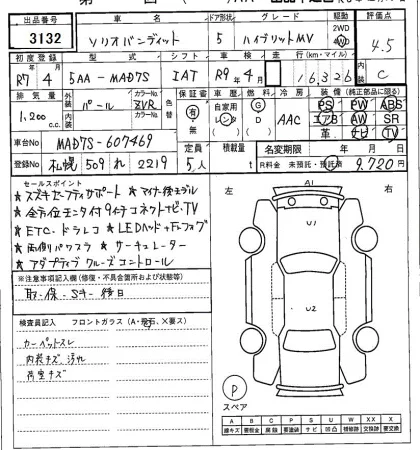 出品番号 車名 ドア形状 グレード 駆動 評価点
3132 ソリオバンディット 5 ハイブリットMV 2WD 4WD 4.5
初度登録 型式 シフト 車検 走行(km・マイル) 内装
R7年4月 5AA-MAD7S IAT R9年4月 16,326 C
排気量 外装 カラーNo. 色替 保証書 車歴 燃料 冷房 装備(純正部品に限る)
1,200 c.c. パール ZVR 有 無 自家用 レンタ G D AAC PS PW ABS
エアB AW SR
革 ナビ TV
車台No MAD7S-607469
定員 積載量 名変期限 年 月 日
登録No 札幌 509 れ 2219 5人 t R料金 未預託・預託済 9,720円
セールスポイント
★スズキセーフティサポート ★マイナー後モデル
★全方位モニタ付9インチコネクトナビ・TV
★ETC・ドラレコ ★LEDヘッド+Fフォグ
★両側パワスラ ★サーキュレーター
★アダプティブクルーズコントロール
※注意事項記入欄(修復・不具合箇所および状態等)
取・保・Sキー後日
検査員記入 フロントガラス(A・飛石、×要ス)
カーペットスレ
内装キズ 汚れ
荷室キズ
左 右
A1
U1
U2
P
スペア
A B C P S U W X XX
線キズ 要板金 腐蝕 要塗装 サビ 凹凸 補修跡 要交換 交換済